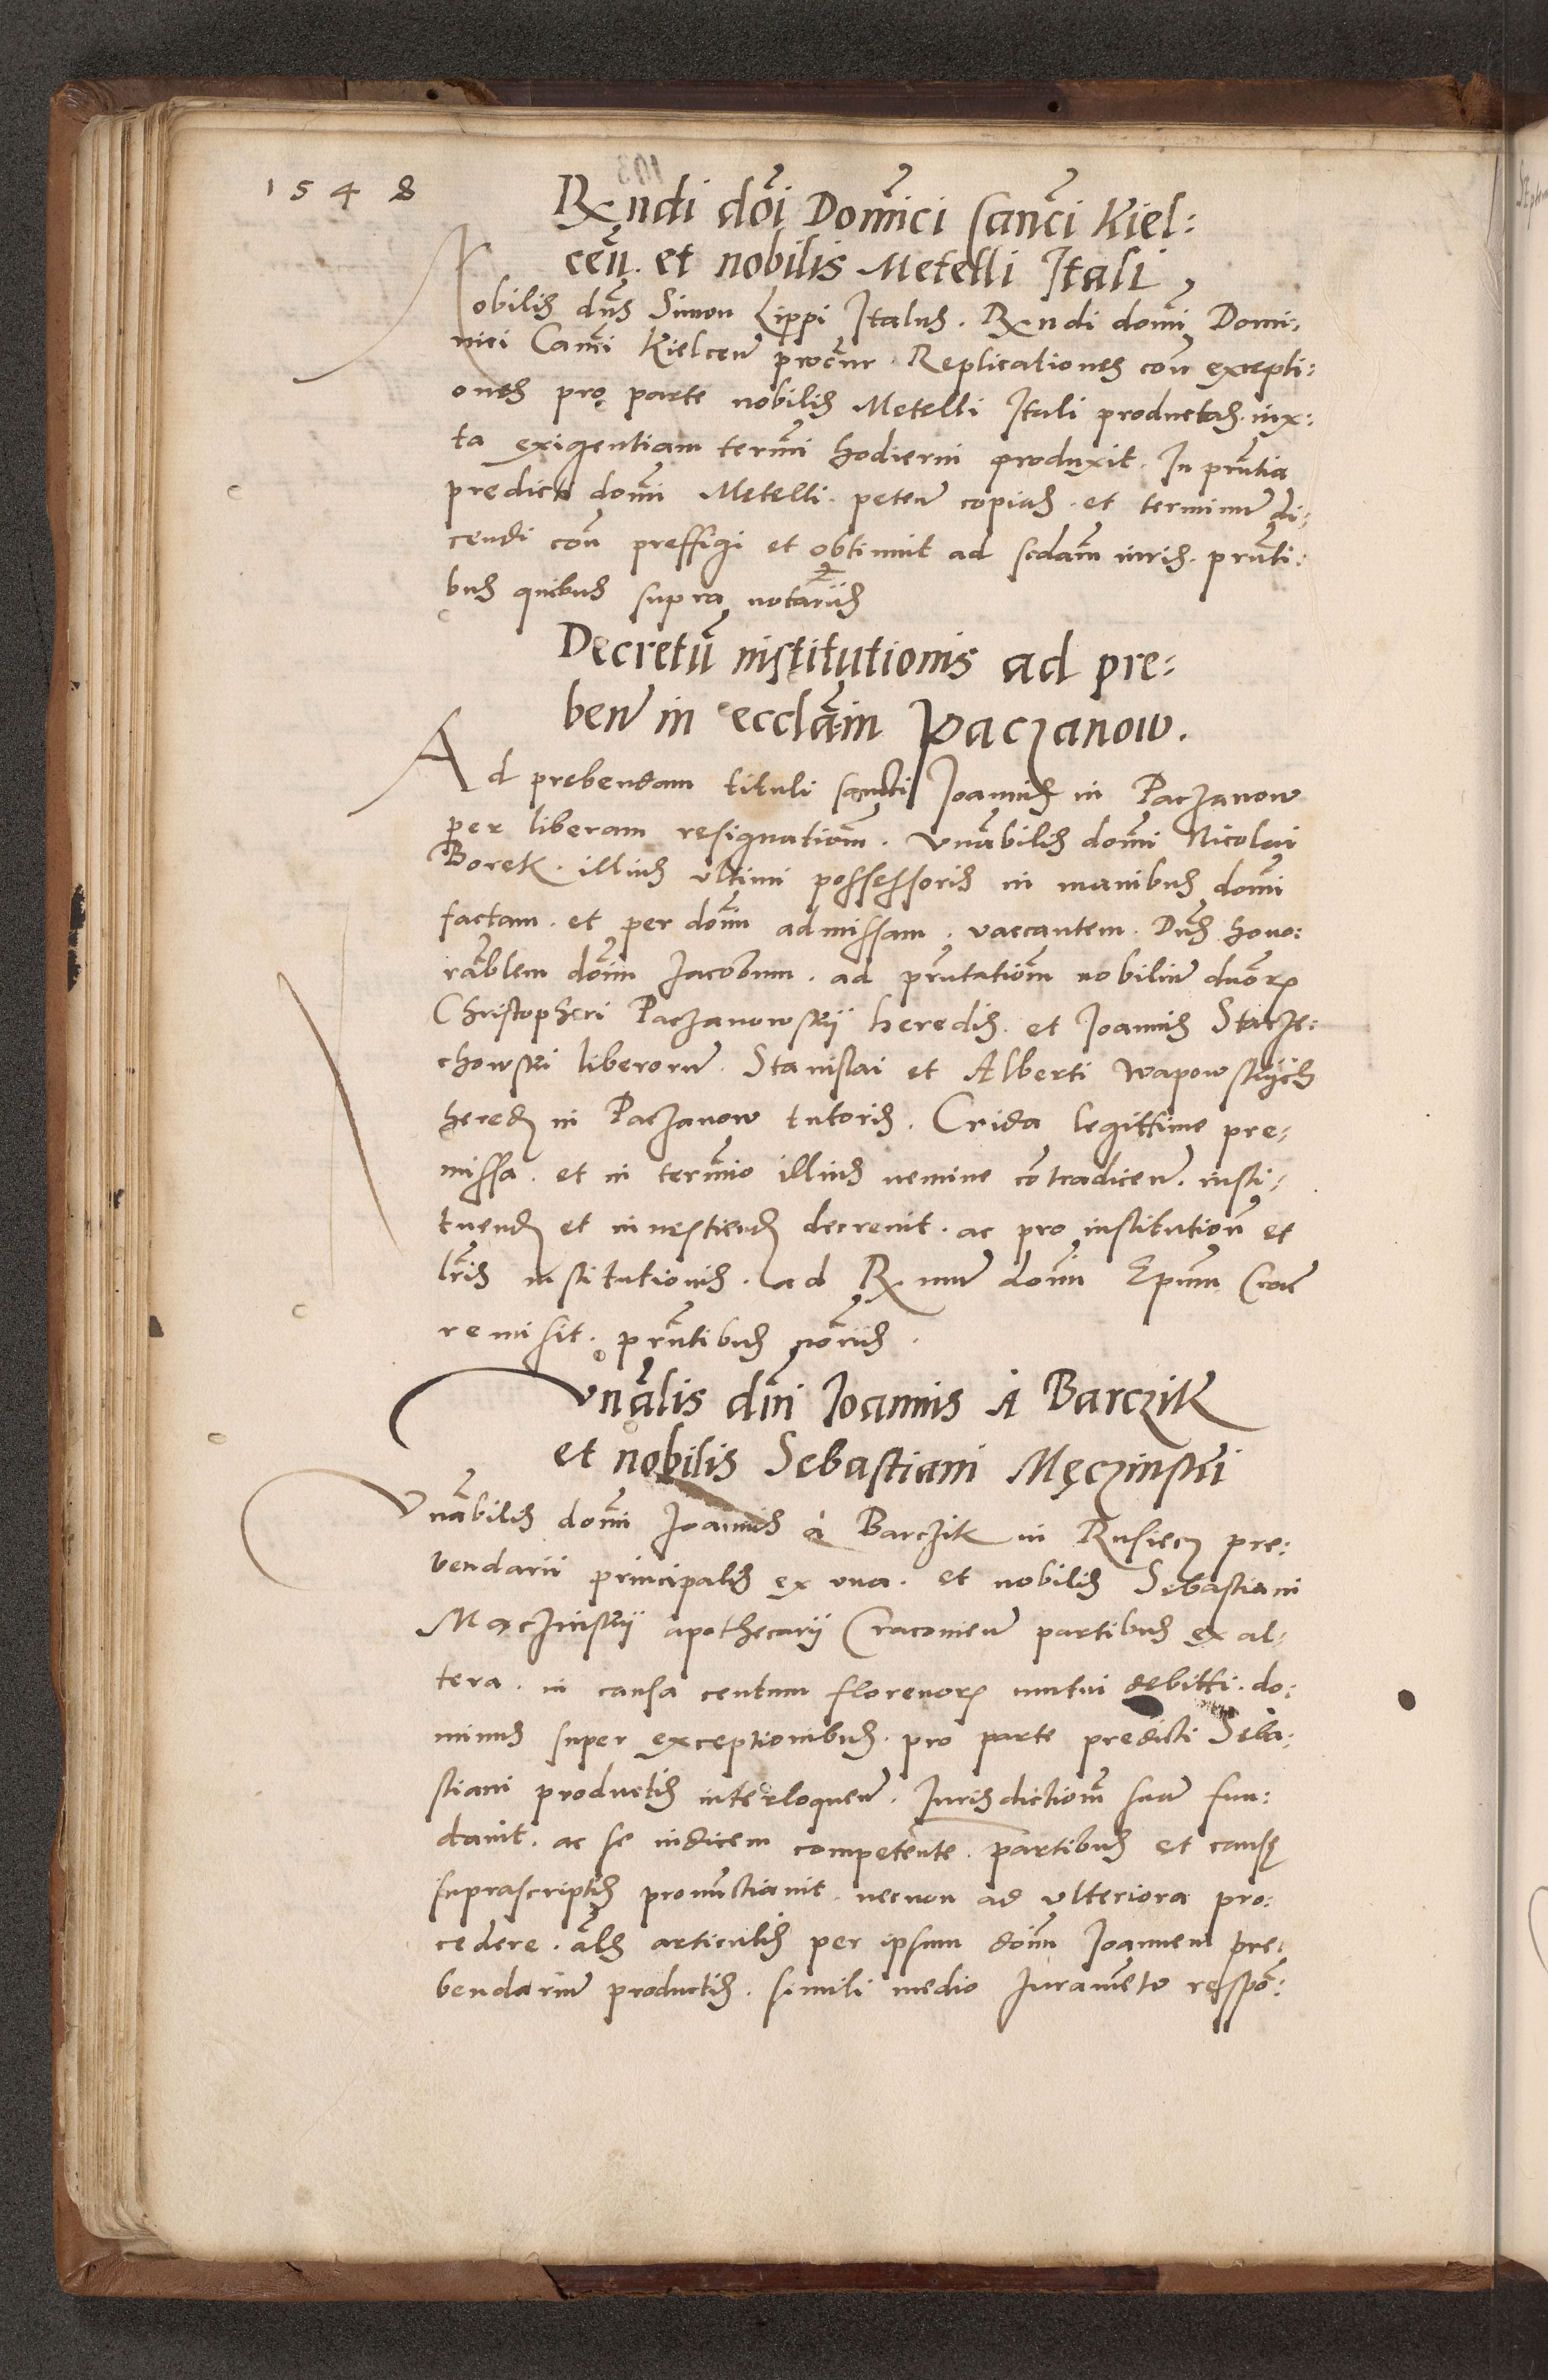 1548
Rx ndi dñi Dominici Canci Kiel:
ceñ. et nobilis Metelli Itali
Nobilis dñs Simon Lippi Italus. Rx ndi domi Domi:
nici Canci Kielceñ procur. Replicationes con excepti:
ones pro parte nobilis Metelli Itali productas. iux:
ta exigentiam termi hodierni produxit. In pñtia
predicti domi Metelli. peteñ copias. et terminum di:
cendi con preffigi et obtinuit ad scdam iuris. pñti:
bus quibus supra notariis
Decretũ institutionis ad pre:
beñ in ecclãm Paczanow.
Ad prebendam tituli sancti Joannis in Paczanow
per liberam resignationm. vnãbilis domi Nicolai
Borek. illius vltimi possessoris in manibus domi
factam. et per domi admissam. vaccantem. Dñs hono:
rãblem domi Jacobum. ad pñtationm nobilium duorʒ
Christopheri Paczanowskij heredis. et Joannis Starze:
chowski liberorum. Stanislai et Alberti Wapowskijch
hered in Paczanow tutoris. Crida legittime pre:
missa. et in termino illius nemine cõtradiceñ. insti:
tuend et investiend decrevit. ac pro institution et
lris institutionis. ad Rx mum domi Epum Crac
remisit. pñtibus notariis.
Vnãlis dñi Joannis à Barczik
et nobilis Sebastiani Męczinski
Vnãbilis domi Joannis à Barczik in Rusiecz pre:
bendarii principalis ex vna. et nobilis Sebastiani
Mączinskij apothecarij Cracovieñ partibus ex al:
tera. in causa centum florenorʒ mutui debitti. do:
minus super exceptionibus. pro parte predicti Seba:
stiani productis interloqueñ. Jurisdictionm suam fun:
davit. ac se iudicem competente. partibus et causę
suprascriptis pronunctiavit. necnon ad vlteriora pro:
cedere. ãls articulis per ipsum domi Joannem pre:
bendarium productis. simili medio Juramẽto respõ: